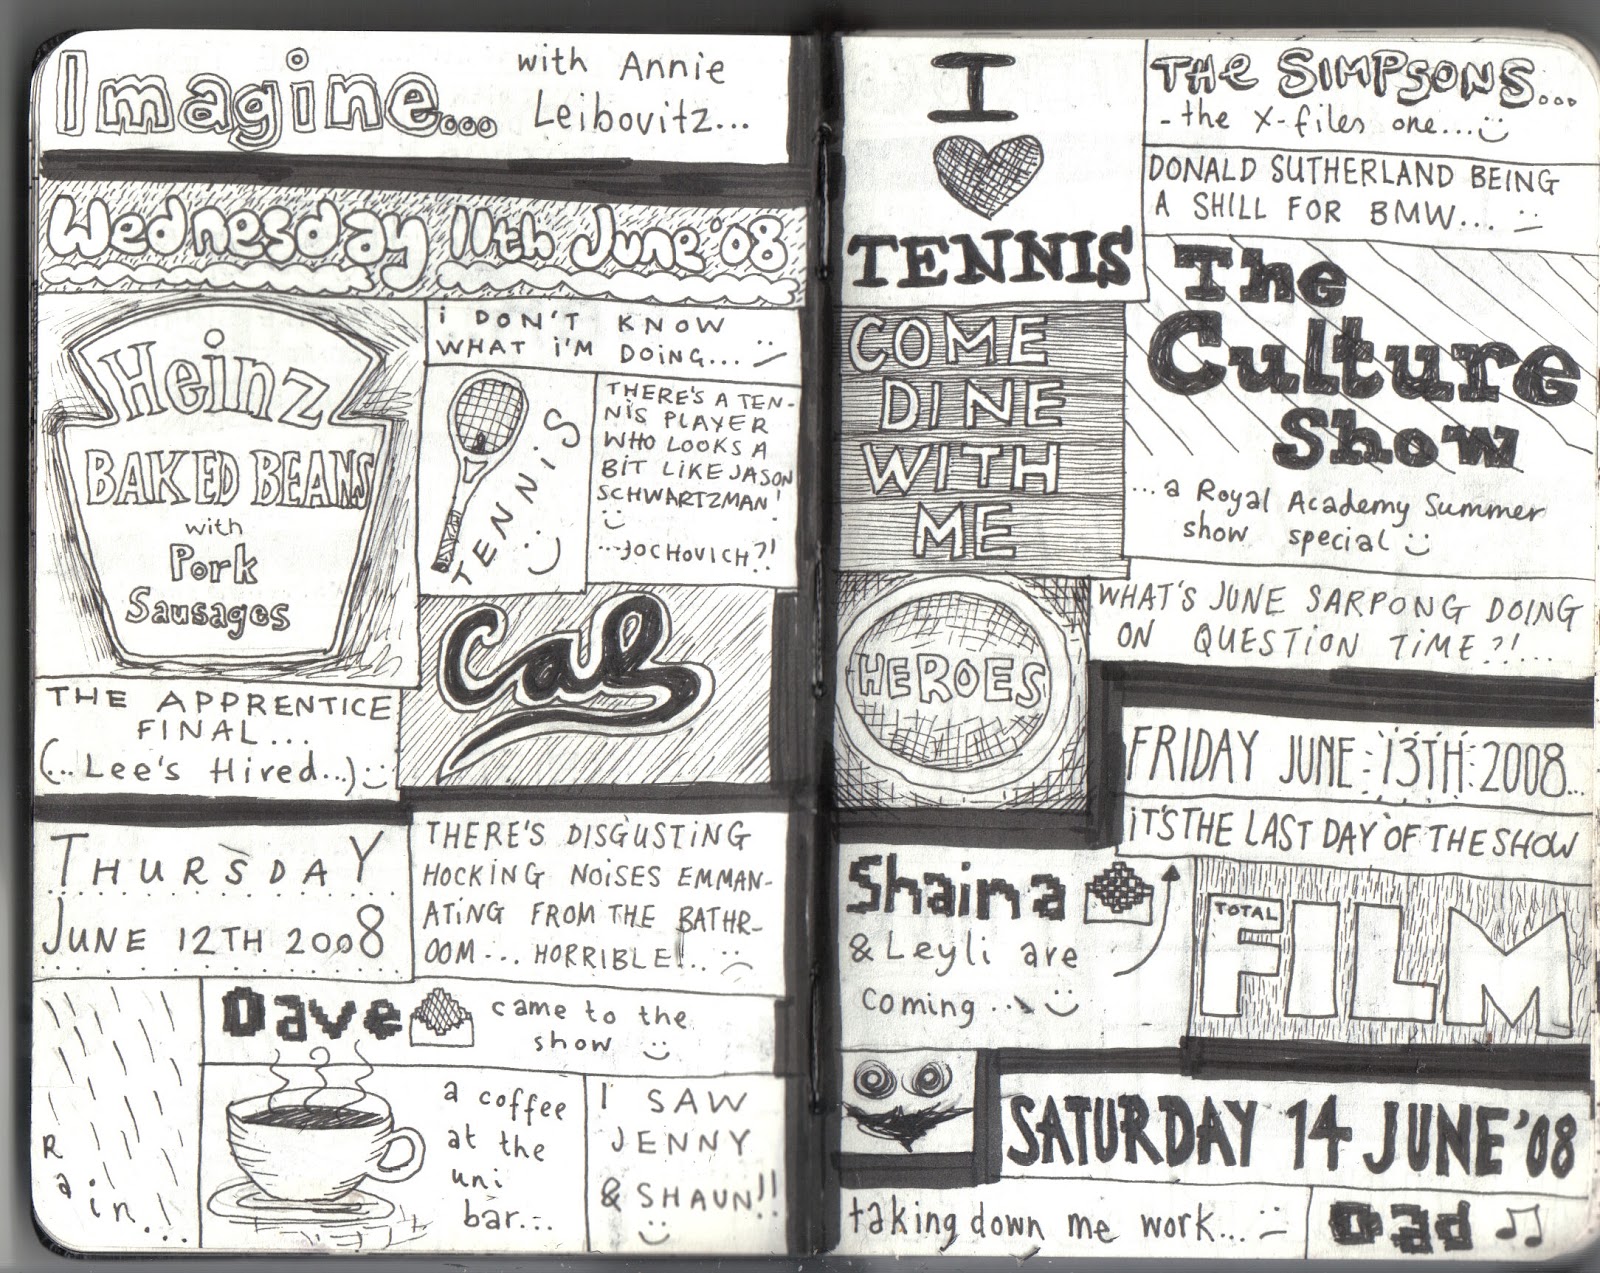 Imagine...
with Annie
Leibovitz...
Wednesday 11th June '08
Heinz
BAKED BEANS
with
Pork
Sausages
i DON'T KNOW
WHAT i'M DOiNG...
TENNiS
THERE'S A TEN-
NiS PLAYER
WHO LOOKS A
BiT LiKE JASON
SCHWARTZMAN!
...JOCHOVICH?!
THE APPRENTICE
FINAL...
(...Lee's Hired...)
Cal
THURSDAY
JUNE 12TH 2008
THERE'S DISGUSTiNG
HOCKING NOiSES EMMAN-
ATiNG FROM THE BATHR-
OOM... HORRiBLE!...
Rain...
Dave
came to the
show
a coffee
at the
uni
bar...
I SAW
JENNY
& SHAUN!!
I
TENNIS
COME
DINE
WITH
ME
HEROES
Shaima
& Leyli are
coming...
THE SIMPSONS...
- the X-files one...
DONALD SUTHERLAND BEING
A SHILL FOR BMW...
The
Culture
Show
...a Royal Academy Summer
show special
WHAT'S JUNE SARPONG DOING
ON QUESTiON TiME?!...
FRIDAY JUNE 13TH 2008...
iT'S THE LAST DAY OF THE SHOW
TOTAL
FILM
SATURDAY 14 JUNE '08
taking down me work...
Dad